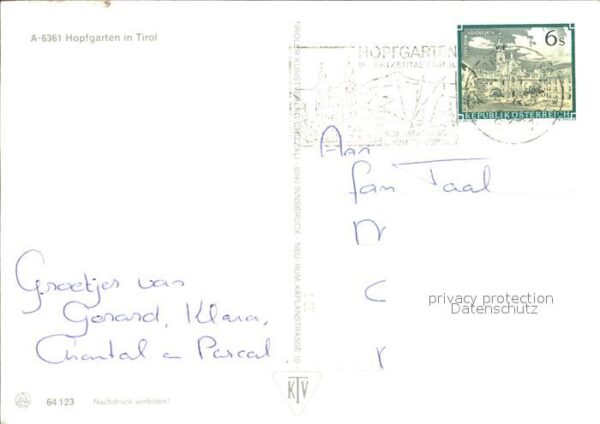 A-6361 Hopfgarten in Tirol
HOPFGARTEN
6 S
REPUBLIK ÖSTERREICH
TIROLER KUNSTVERLAG CHIZZALI · 6040 INNSBRUCK NEU-RUM KAPLANSTRASSE 10
Aan
fam. Taal
N
C
privacy protection
Datenschutz
Groetjes van
Gerard, Klara,
Chantal en Pascal.
KTV
64 123 Nachdruck verboten!